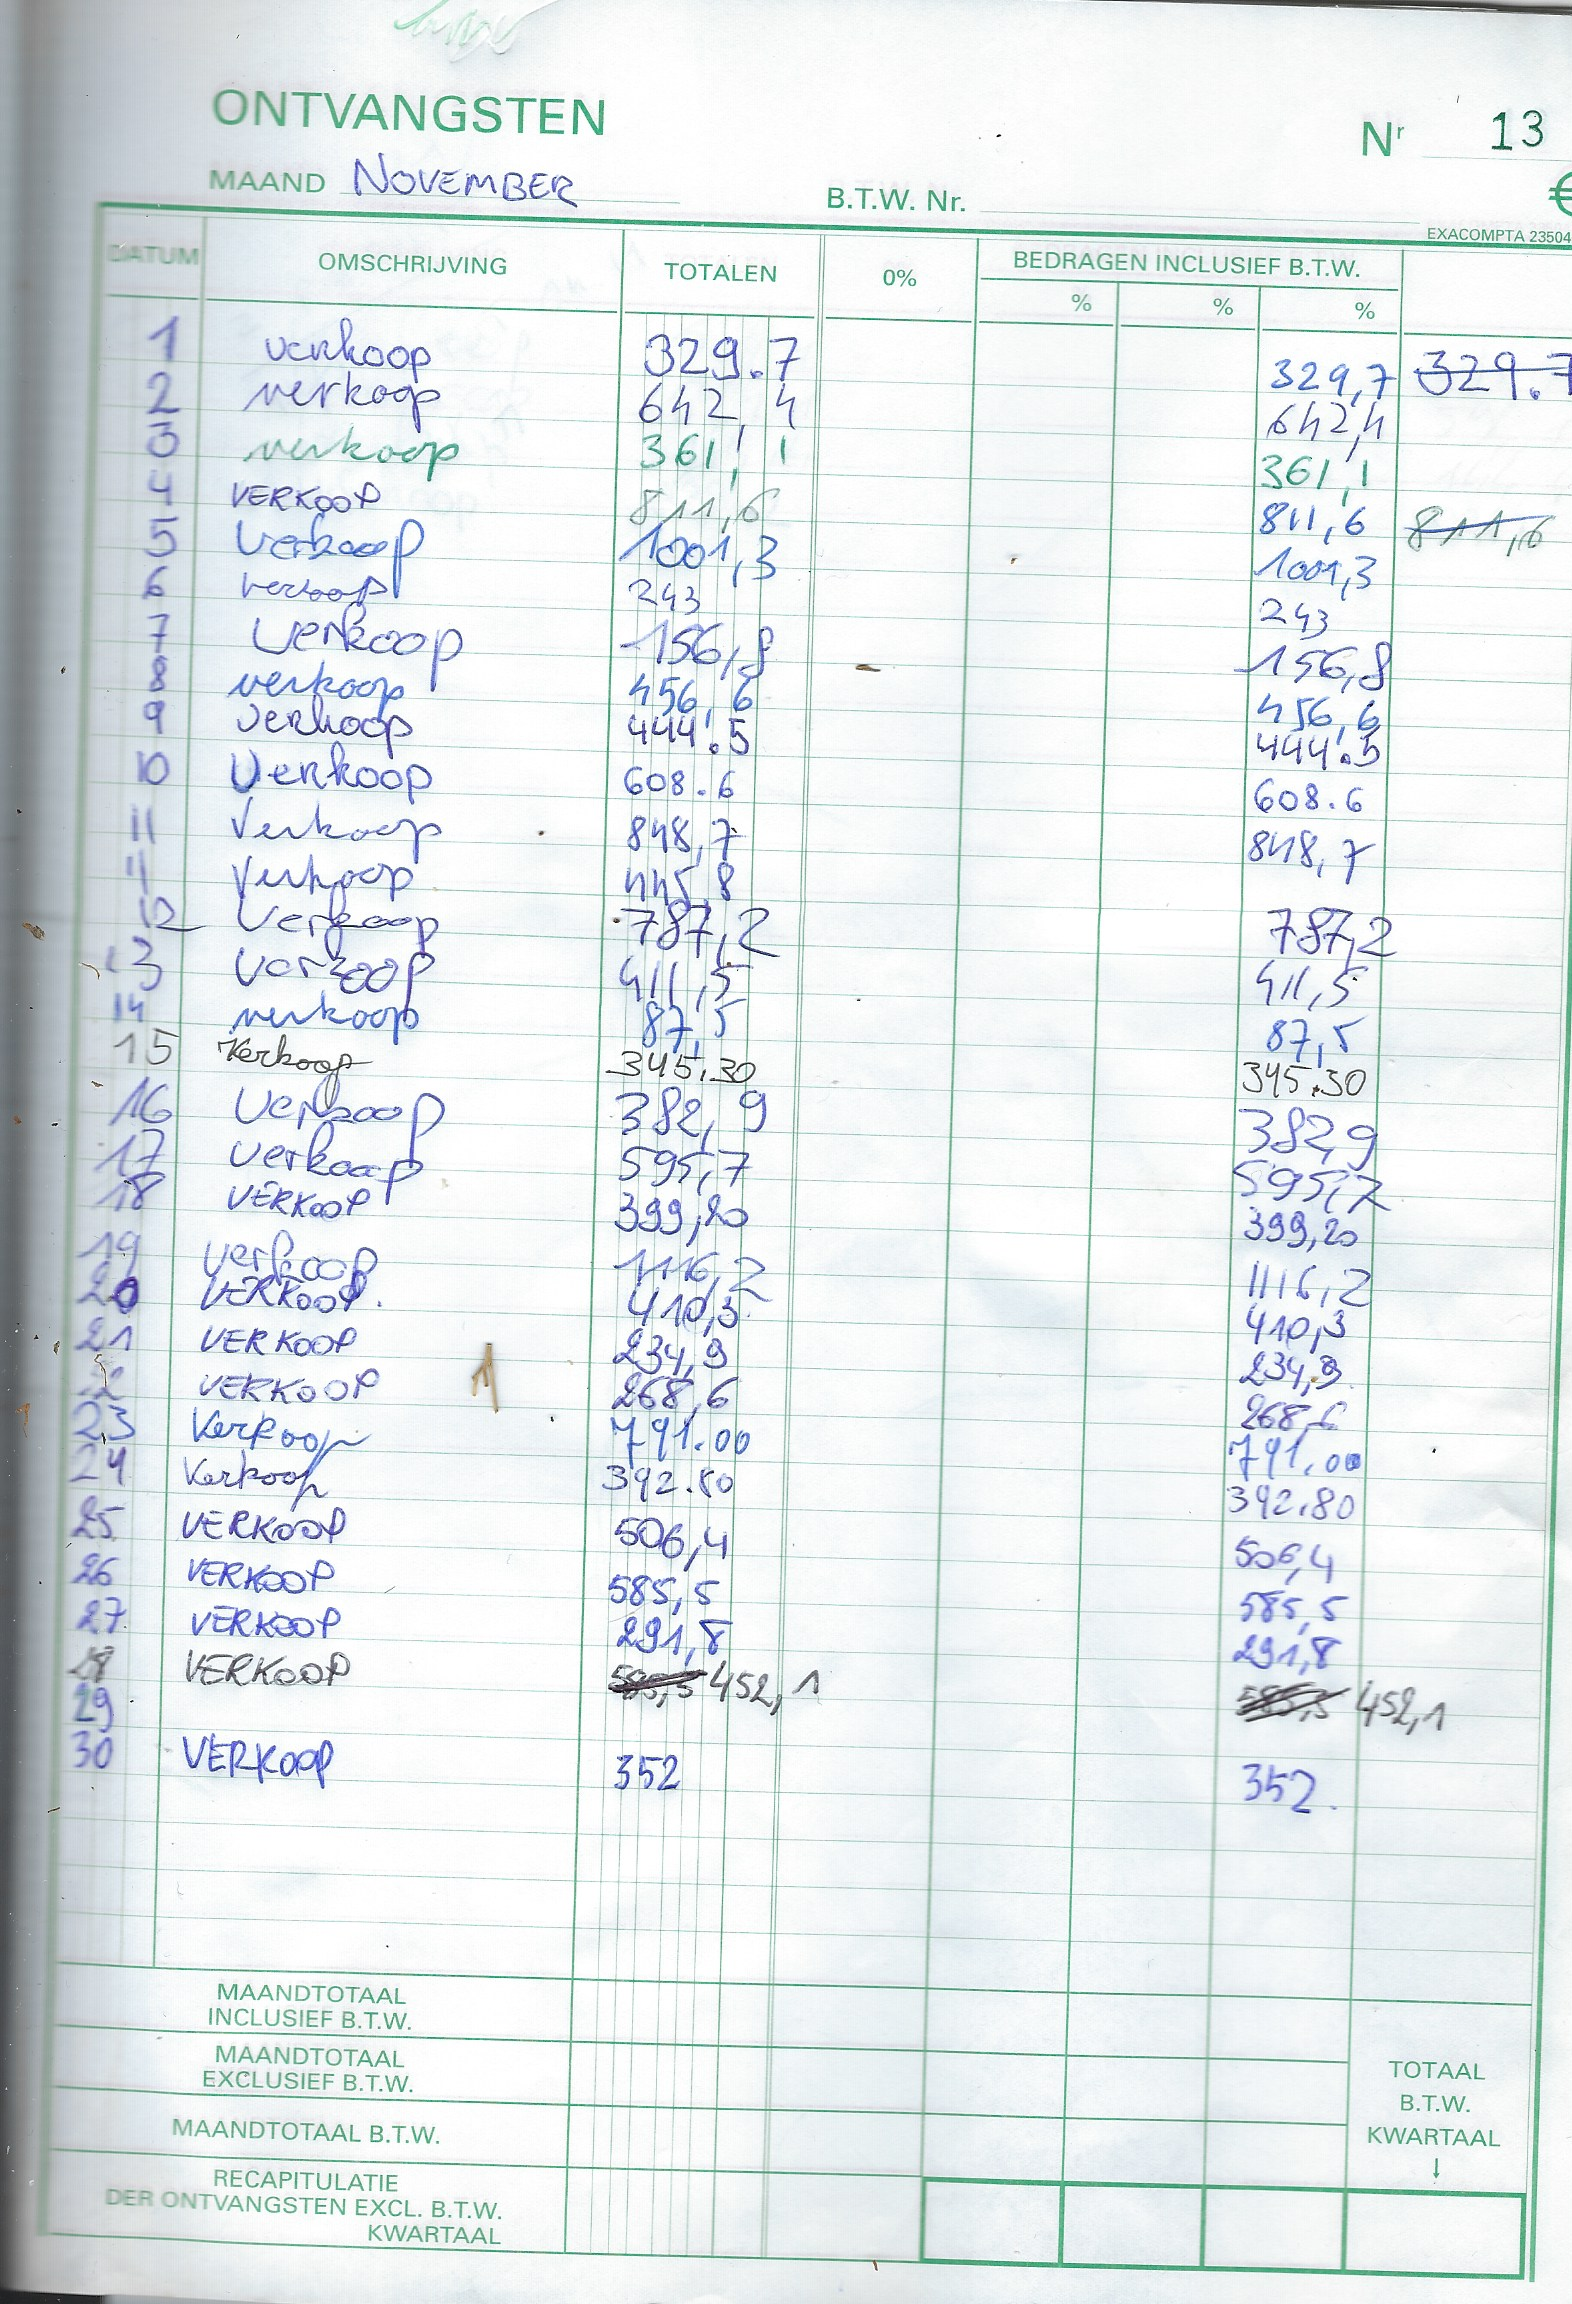 ONTVANGSTEN
Nr 13
MAAND NOVEMBER
B.T.W. Nr.
€
EXACOMPTA 23504
DATUM OMSCHRIJVING TOTALEN 0% BEDRAGEN INCLUSIEF B.T.W.
% % %
1 verkoop 329.7 329,7 329.7
2 verkoop 642,4 642,4
3 verkoop 361,1 361,1
4 VERKOOP 811,6 811,6 811,6
5 Verkoop 1001,3 1001,3
6 verkoop 243 243
7 Verkoop 156,8 156,8
8 verkoop 456,6 456,6
9 verkoop 444.5 444.5
10 Verkoop 608.6 608.6
11 Verkoop 848,7 848,7
11 Verkoop 445,8
12 Verkoop 787,2 787,2
13 Verkoop 411,5 411,5
14 verkoop 87,5 87,5
15 Verkoop 345.30 345.30
16 Verkoop 382,9 382,9
17 Verkoop 595,7 595,7
18 VERKOOP 399,20 399,20
19 Verkoop 1116,2 1116,2
20 VERKOOP. 410,3 410,3
21 VERKOOP 234,9 234,9
22 VERKOOP 268,6 268,6
23 Verkoop 791.00 791.00
24 Verkoop 392.80 392.80
25 VERKOOP 506,4 506,4
26 VERKOOP 585,5 585,5
27 VERKOOP 291,8 291,8
28 VERKOOP 585,5 452,1 585,5 452,1
29
30 VERKOOP 352 352.
MAANDTOTAAL
INCLUSIEF B.T.W.
MAANDTOTAAL
EXCLUSIEF B.T.W.
MAANDTOTAAL B.T.W.
TOTAAL
B.T.W.
KWARTAAL
↓
RECAPITULATIE
DER ONTVANGSTEN EXCL. B.T.W.
KWARTAAL